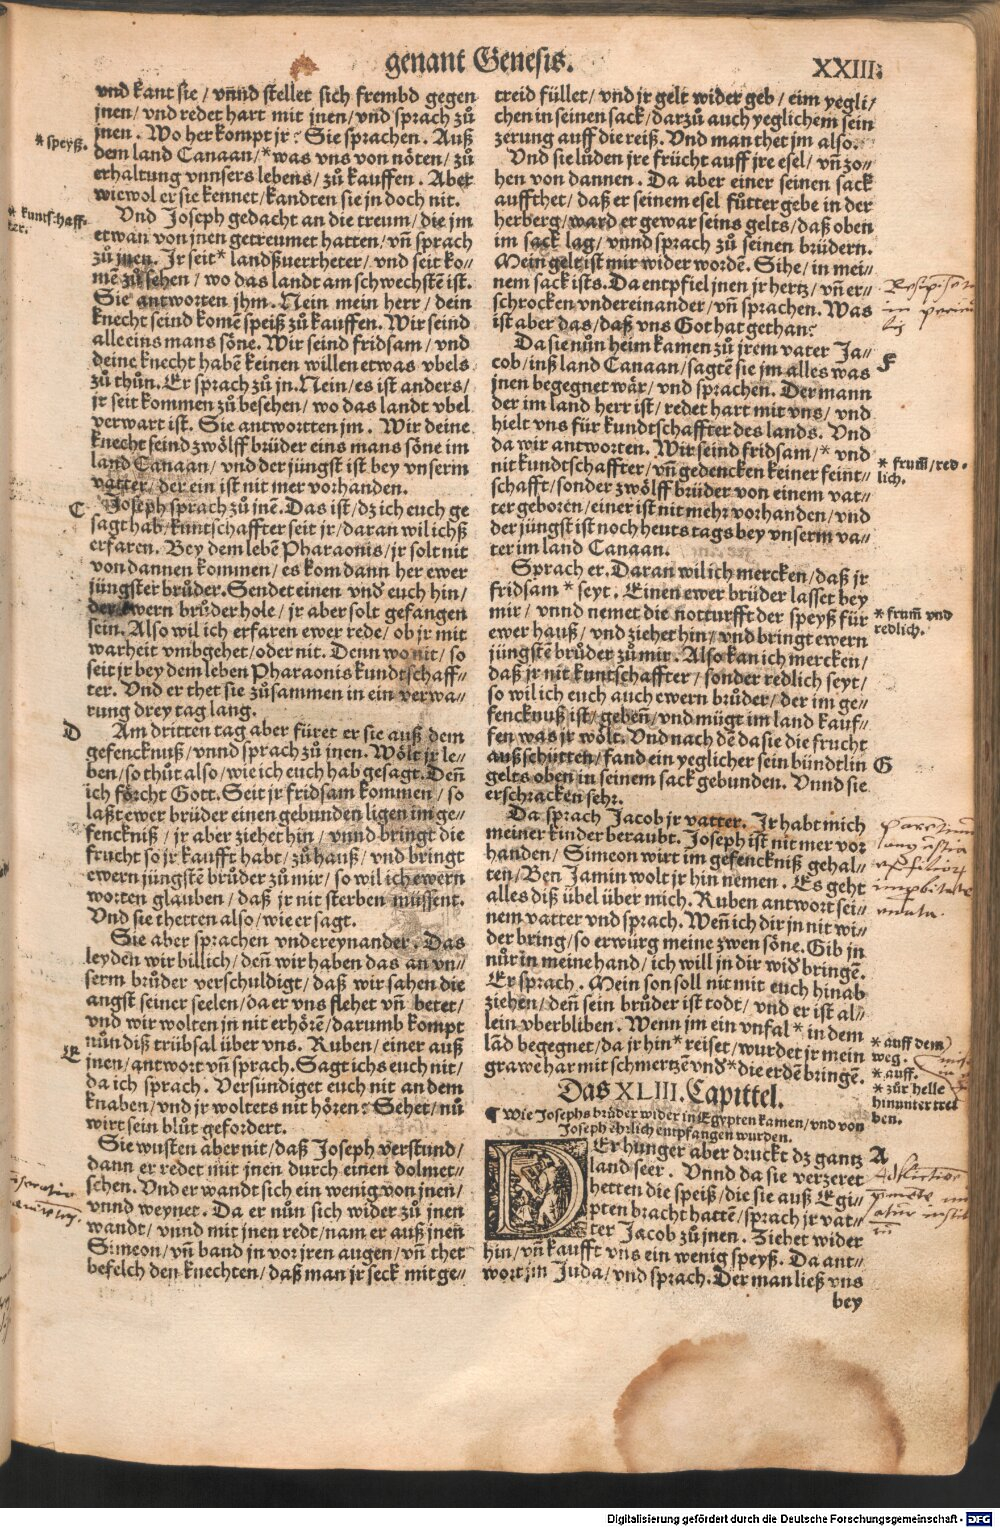 genant Genesis.
XXIII.
vnd kant sie / vnnd stellet sich frembd gegen
jnen / vnd redet hart mit jnen / vnd sprach zů
jnen . Wo her kompt jr ? Sie sprachen . Auß
dem land Canaan / *was vns von nöten / zů
erhaltung vnnsers lebens / zů kauffen . Aber
wiewol er sie kennet / kandten sie jn doch nit.
Vnd Joseph gedacht an die treum / die jm
etwan von jnen getreumet hatten / vñ sprach
zů jnen. Jr seit* landßuerrheter / vnd seit ko⸗
mē zů sehen / wo das landt am schwechstē ist.
Sie antworten jhm . Nein mein herr / dein
knecht seind komē speiß zů kauffen. Wir seind
alle eins mans söne. Wir seind fridsam / vnd
deine knecht habē keinen willen etwas vbels
zů thůn. Er sprach zů jn. Nein / es ist anders /
jr seit kommen zů besehen / wo das landt vbel
verwart ist. Sie antwortten jm . Wir deine
knecht seind zwölff brüder eins mans söne im
land Canaan / vnd der jüngst ist bey vnserm
vatter / der ein ist nit mer vorhanden.
Joseph sprach zů jnē. Das ist / dz ich euch ge
sagt hab / kuntschaffter seit jr / daran wil ichß
erfaren. Bey dem lebē Pharaonis / jr solt nit
von dannen kommen / es kom dann her ewer
jüngster brůder. Sendet einen vnd' euch hin /
der ewern brůder hole / jr aber solt gefangen
sein. Also wil ich erfaren ewer rede / ob jr mit
warheit vmbgehet / oder nit. Denn wo nit / so
seit jr bey dem leben Pharaonis kundtschaff⸗
ter. Vnd er thet sie zůsammen in ein verwa⸗
rung drey tag lang.
Am dritten tag aber füret er sie auß dem
gefencknuß / vnnd sprach zů jnen. Wölt jr le⸗
ben / so thůt also / wie ich euch hab gesagt. Deñ
ich förcht Gott. Seit jr fridsam kommen / so
laßt ewer brüder einen gebunden ligen im ge⸗
fenckniß / jr aber ziehet hin / vnnd bringt die
frucht so jr kaufft habt / zů hauß / vnd bringt
ewern jüngstē brůder zů mir / so wil ich ewern
worten glauben / daß jr nit sterben müssent.
Vnd sie thetten also / wie er sagt.
Sie aber sprachen vndereynander. Das
leyden wir billich / deñ wir haben das an vn⸗
serm brůder verschuldigt / daß wir sahen die
angst seiner seelen / da er vns flehet vñ betet /
vnd wir wolten jn nit erhörē / darumb kompt
nůn diß trübsal über vns. Ruben / einer auß
jnen / antwort vñ sprach. Sagt ichs euch nit /
da ich sprach. Versündiget euch nit an dem
knaben / vnd jr woltets nit hören ? Sehet / nů
wirt sein blůt gefordert.
Sie wusten aber nit / daß Joseph verstund /
dann er redet mit jnen durch einen dolmet⸗
schen. Vnd er wandt sich ein wenig von jnen /
vnnd weynet. Da er nůn sich wider zů jnen
wandt / vnnd mit jnen redt / nam er auß jnen
Simeon / vñ band jn vor jren augen / vñ thet
befelch den knechten / daß man jr seck mit ge⸗
* speyß.
* kuntschaff⸗
ter.
C
D
E
treid füllet / vnd jr gelt wider geb / eim yegli⸗
chen in seinen sack / darzů auch yeglichem sein
zerung auff die reiß. Vnd man thet jm also.
Vnd sie lůden jre frücht auff jre esel / vñ zo⸗
hen von dannen. Da aber einer seinen sack
auffthet / daß er seinem esel fůtter gebe in der
herberg / ward er gewar seins gelts / daß oben
im sack lag / vnnd sprach zů seinen brüdern.
Mein gelt ist mir wider wordē. Sihe / in mei⸗
nem sack ists. Da entpfiel jnen jr hertz / vñ er⸗
schrocken vndereinander / vñ sprachen. Was
ist aber das / daß vns Got hat gethan?
Da sie nůn heim kamen zů jrem vater Ja⸗
cob / inß land Canaan / sagtē sie jm alles was
jnen begegnet wär / vnd sprachen. Der mann
der im land herr ist / redet hart mit vns / vnd
hielt vns für kundtschaffter des lands. Vnd
da wir antworten. Wir seind fridsam / * vnd
nit kundtschaffter / vñ gedencken keiner feint⸗
schafft / sonder zwölff brüder von einem vat⸗
ter geboren / einer ist nit mehr vorhanden / vnd
der jüngst ist noch heuts tags bey vnserm va⸗
ter im land Canaan.
Sprach er. Daran wil ich mercken / daß jr
fridsam * seyt. Einen ewer brüder lasset bey
mir / vnnd nemet die notturfft der speyß für
ewer hauß / vnd ziehet hin / vnd bringt ewern
jüngstē brůder zů mir. Also kan ich mercken /
daß jr nit kuntschaffter / sonder redlich seyt /
so wil ich euch auch ewern brůder / der im ge⸗
fencknuß ist / gebeñ / vnd mügt im land kauf⸗
fen was jr wölt. Vnd nach dē da sie die frucht
außschütten / fand ein yeglicher sein bündtlin
gelts oben in seinem sack gebunden. Vnnd sie
erschracken sehr.
Da sprach Jacob jr vatter. Jr habt mich
meiner kinder beraubt. Joseph ist nit mer vor
handen / Simeon wirt im gefenckniß gehal⸗
ten / Ben Jamin wolt jr hin nemen . Es geht
alles diß übel über mich. Ruben antwort sei⸗
nem vatter vnd sprach. Weñ ich dir jn nit wi⸗
der bring / so erwürg meine zwen söne. Gib jn
nůr in meine hand / ich will jn dir wid' bringē.
Er sprach . Mein son soll nit mit euch hinab
ziehen / deñ sein brůder ist todt / vnd er ist al⸗
lein vberbliben . Wenn jm ein vnfal * in dem
lād begegnet / da jr hin* reiset / wurdet jr mein
grawe har mit schmertzē vnd' *die erdē bringē.
Das XLIII. Capittel.
¶ Wie Josephs brüder wider in Egypten kamen / vnd von
Joseph ehrlich entpfangen wurden.
DEr hunger aber druckt dz gantz
land seer . Vnnd da sie verzeret
hetten die speiß / die sie auß Egi⸗
pten bracht hattē / sprach jr vat⸗
ter Jacob zů jnen. Ziehet wider
hin / vñ kaufft vns ein wenig speyß. Da ant⸗
wort jm Juda / vnd sprach. Der man ließ vns
bey
F
* frum̃ / red⸗
lich.
* frum̃ vnd
redlich.
G
* auff dem
weg.
* auff.
* zůr helle
hinunter trei
ben.
A
Digitalisierung gefördert durch die Deutsche Forschungsgemeinschaft - DFG